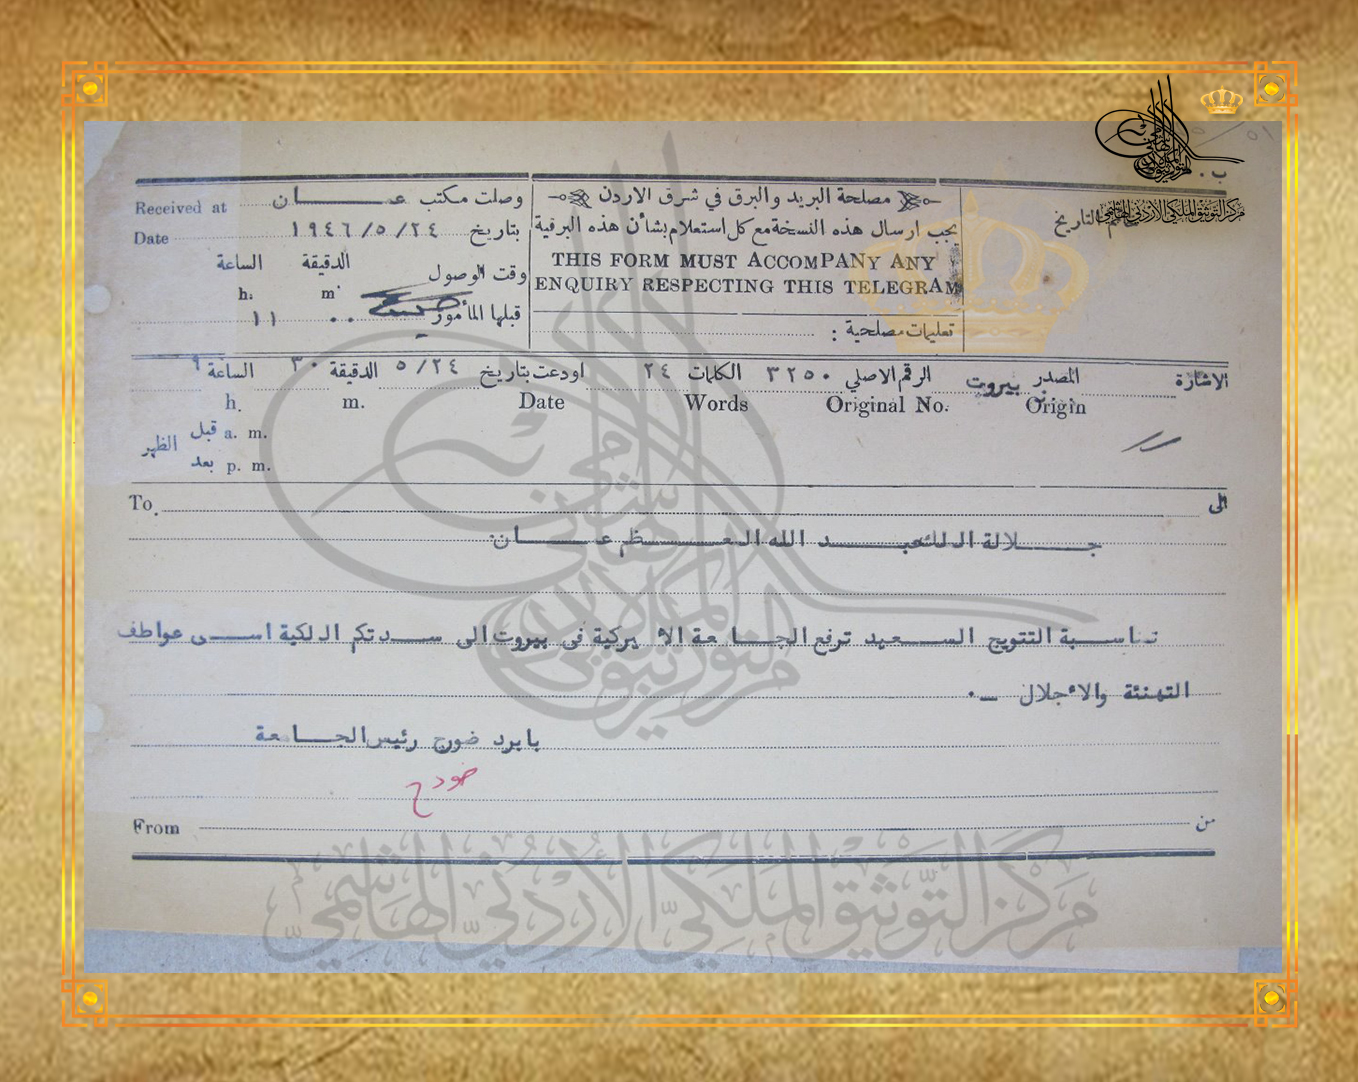 ب .
مركز التوثيق الملكي الأردني الهاشمي
وصلت مكتب عمـــــان
Received at
مصلحة البريد والبرق في شرق الاردن
بتاريخ ١٩٤٦/٥/٢٤
Date
يجب ارسال هذه النسخة مع كل استعلام بشأن هذه البرقية
التاريخ
الساعة الدقيقة
وقت الوصول
THIS FORM MUST ACCOMPANY ANY
h. m.
ENQUIRY RESPECTING THIS TELEGRAM
قبلها المأمور
١١ ٠٠
تعليمات مصلحية :
الاشارة
المصدر بيروت الرقم الاصلي ٣٢٥٠ الكلمات ٢٤ اودعت بتاريخ ٥/٢٤ الدقيقة ٣٠ الساعة ٩
Origin Original No. Words Date m. h.
قبل a. m.
الظهر
بعد p. m.
To الى
جـــلالة الملك عبـــد الله المعـــظم عمـــان
بمناســبة التتويج الســـعيد ترفع الجـــامعة الاميركية في بيروت الى ســـدتكم الملكية اســـمى عواطف
التهنئة والاجلال ـ.
بايرد ضودج رئيس الجـــامعة
ضودج
From من
مركز التوثيق الملكي الأردني الهاشمي